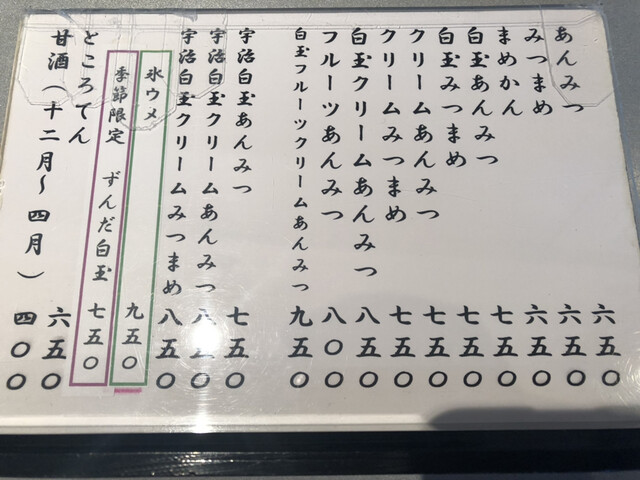 あんみつ 六五〇
みつまめ 六五〇
まめかん 六五〇
白玉あんみつ 七五〇
白玉みつまめ 七五〇
クリームあんみつ 七五〇
クリームみつまめ 七五〇
白玉クリームあんみつ 八五〇
フルーツあんみつ 八〇〇
白玉フルーツクリームあんみつ 九五〇
宇治白玉あんみつ 七五〇
宇治白玉クリームあんみつ 八五〇
宇治白玉クリームみつまめ 八五〇
氷ウメ 九五〇
季節限定 ずんだ白玉 七五〇
ところてん 六五〇
甘酒(十二月〜四月) 四〇〇